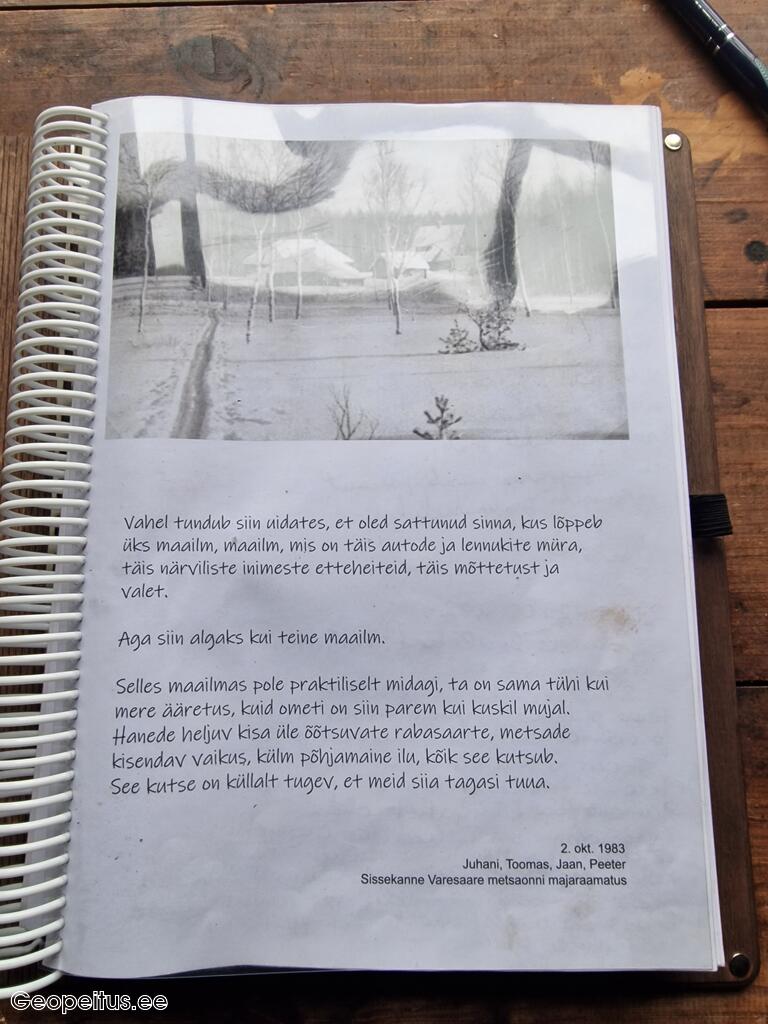 Vahel tundub siin uidates, et oled sattunud sinna, kus lõppeb
üks maailm, maailm, mis on täis autode ja lennukite müra,
täis närviliste inimeste etteheiteid, täis mõttetust ja
valet.
Aga siin algaks kui teine maailm.
Selles maailmas pole praktiliselt midagi, ta on sama tühi kui
mere ääretus, kuid ometi on siin parem kui kuskil mujal.
Hanede heljuv kisa üle õõtsuvate rabasaarte, metsade
kisendav vaikus, külm põhjamaine ilu, kõik see kutsub.
See kutse on küllalt tugev, et meid siia tagasi tuua.
2. okt. 1983
Juhani, Toomas, Jaan, Peeter
Sissekanne Varesaare metsaonni majaraamatus
Geopeitus.ee